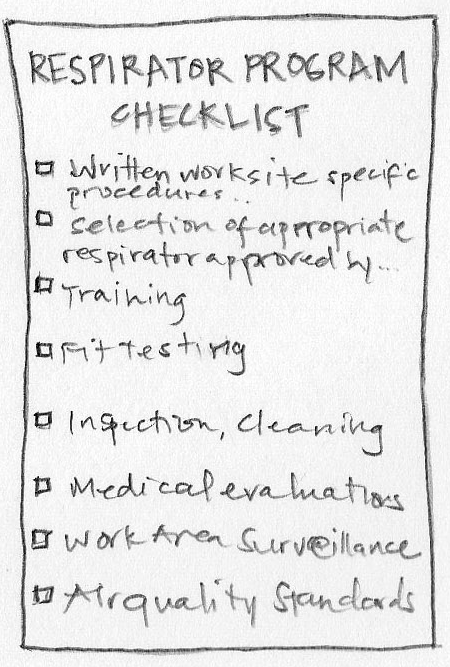 RESPIRATOR PROGRAM
CHECKLIST
Written worksite specific
procedures...
Selection of appropriate
respirator approved by...
Training
Fit testing
Inspection, Cleaning
Medical evaluations
Work Area Surveillance
Air quality Standards